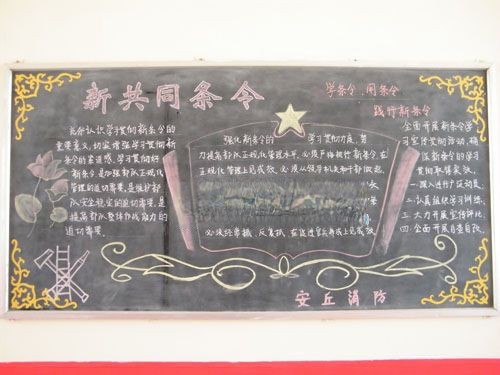 新共同条令
学条令 用条令
践行新条令
充分认识学习贯彻新条令的
重要意义,切实增强学习贯彻新
条令的责任感。学习贯彻新
条令是加强部队正规化
管理的迫切需要,是维护部
队安全稳定的迫切需要,是
提高部队整体作战能力的
迫切需要。
强化新条令的 学习贯彻力度,努
力提高部队正规化管理水平,必须手相按新条令在
正规化管理上见成效,必须从领导机关和干部做起,
必须经常抓、反复抓,在改进官兵养成上见成效
全面开展新条令学
习宣传贯彻活动,确
保新条令的学习
贯彻取得实效。
一深入进行广泛动员,
二认真组织学习训练,
三大力开展宣传评比,
四全面开展自查自改。
安丘消防